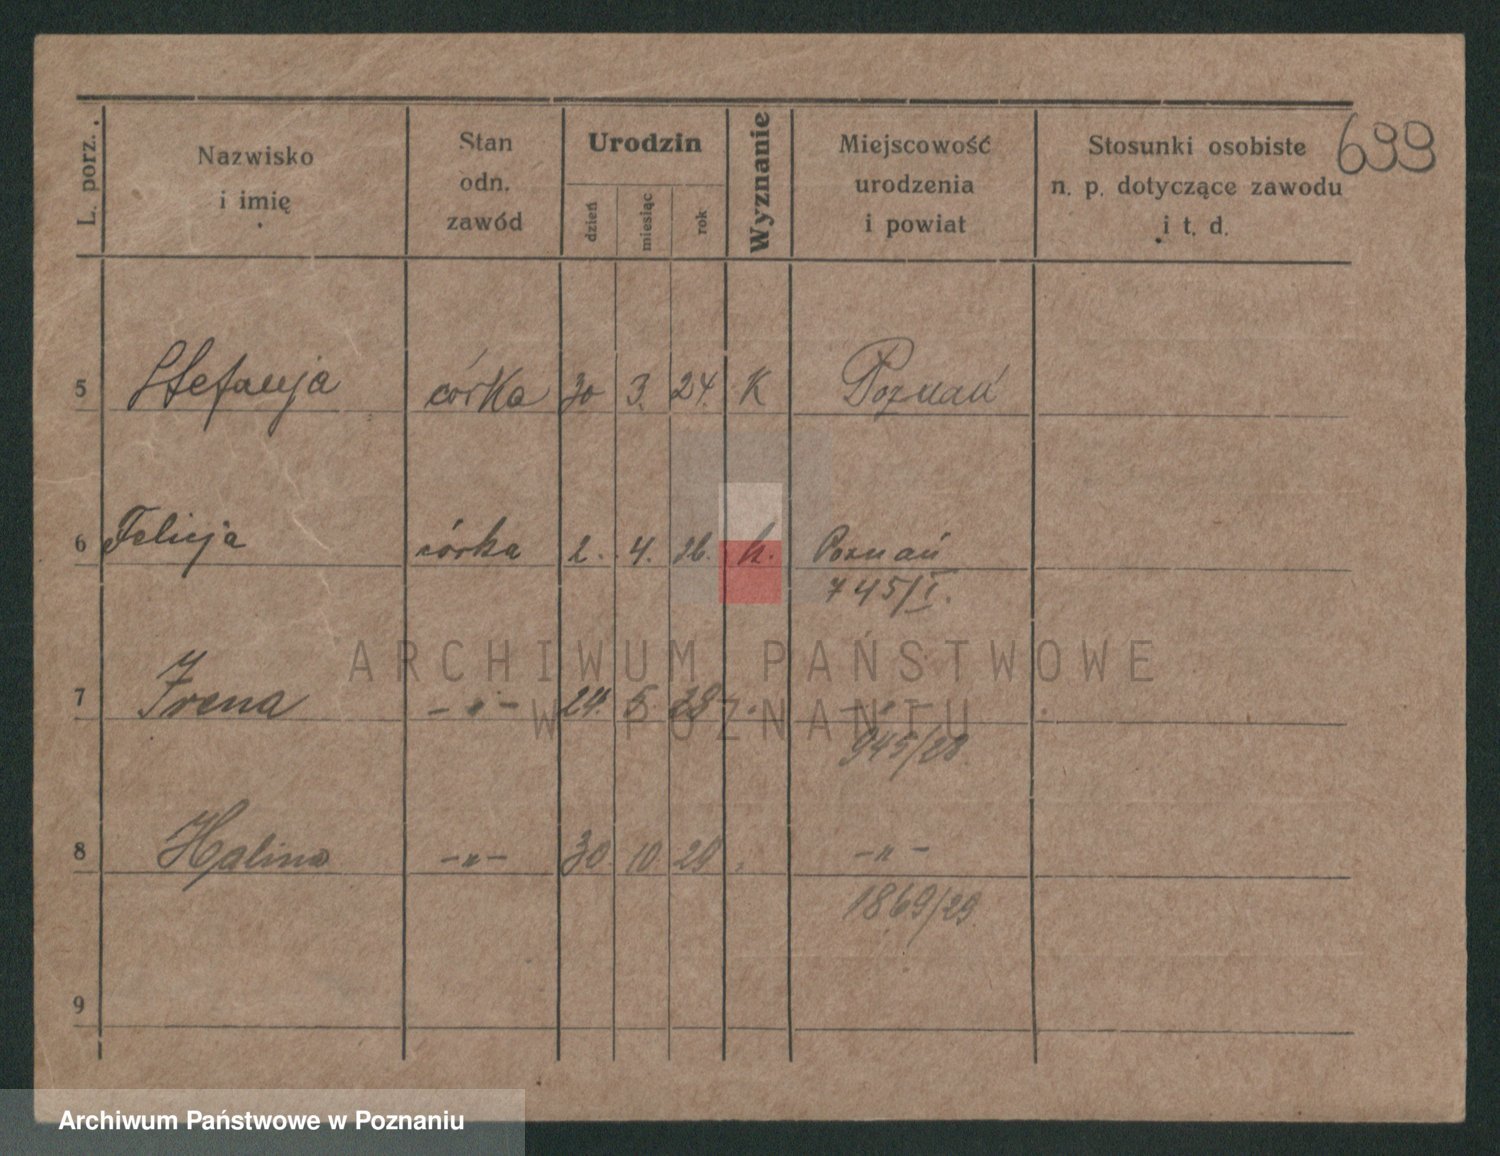 L. porz.
Nazwisko
i imię
Stan
odn.
zawód
Urodzin
dzień
miesiąc
rok
Wyznanie
Miejscowość
urodzenia
i powiat
Stosunki osobiste
n. p. dotyczące zawodu
i t. d.
699
5 Stefanja córka 30 3. 24. K Poznań
6 Felicja córka 2. 4. 26. k. Poznań
745/I.
7 Irena -"- 24. 5. 28 -"-
945/28.
8 Halina -"- 30 10 29 -"-
1869/29
9
ARCHIWUM PAŃSTWOWE
W POZNANIU
Archiwum Państwowe w Poznaniu